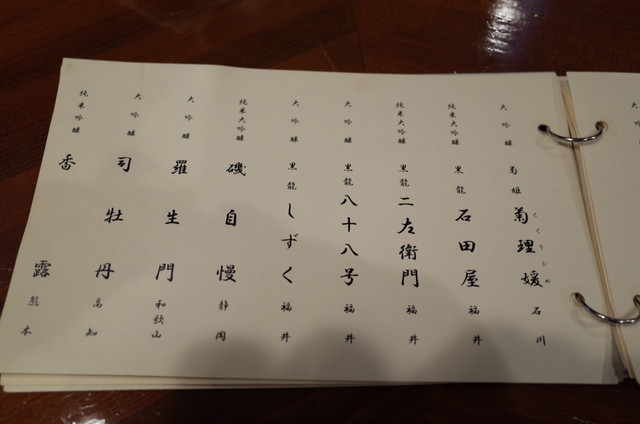 大吟醸 菊姫 菊理媛 くくりひめ 石川
純米大吟醸 黒龍 石田屋 福井
純米大吟醸 黒龍 二左衛門 福井
大吟醸 黒龍 八十八号 福井
大吟醸 黒龍 しずく 福井
純米大吟醸 磯自慢 静岡
大吟醸 羅生門 和歌山
大吟醸 司牡丹 高知
純米吟醸 香露 熊本